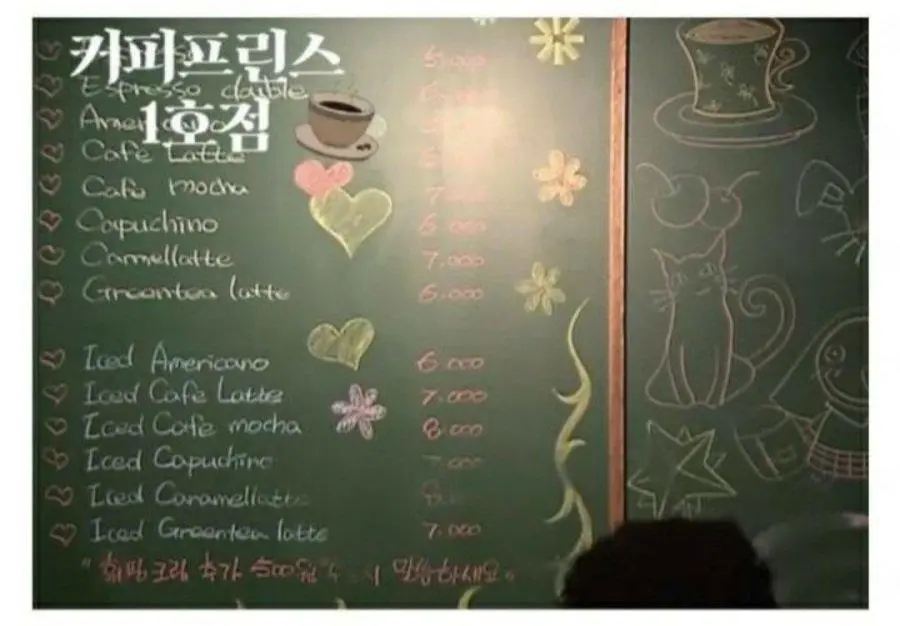 커피프린스
1호점
5.000
Espresso double
Americano
Cafe Latte
Cafe mocha 7.000
Capuchino 6.000
Carmellatte 7.000
Greentea latte 6.000
Iced Americano 6.000
Iced Cafe Latte 7.000
Iced Cafe mocha 8.000
Iced Capuchino 7.000
Iced Caramellatte
Iced Greentea latte 7.000
" 휘핑크림 추가 500원 시 말씀하세요 "